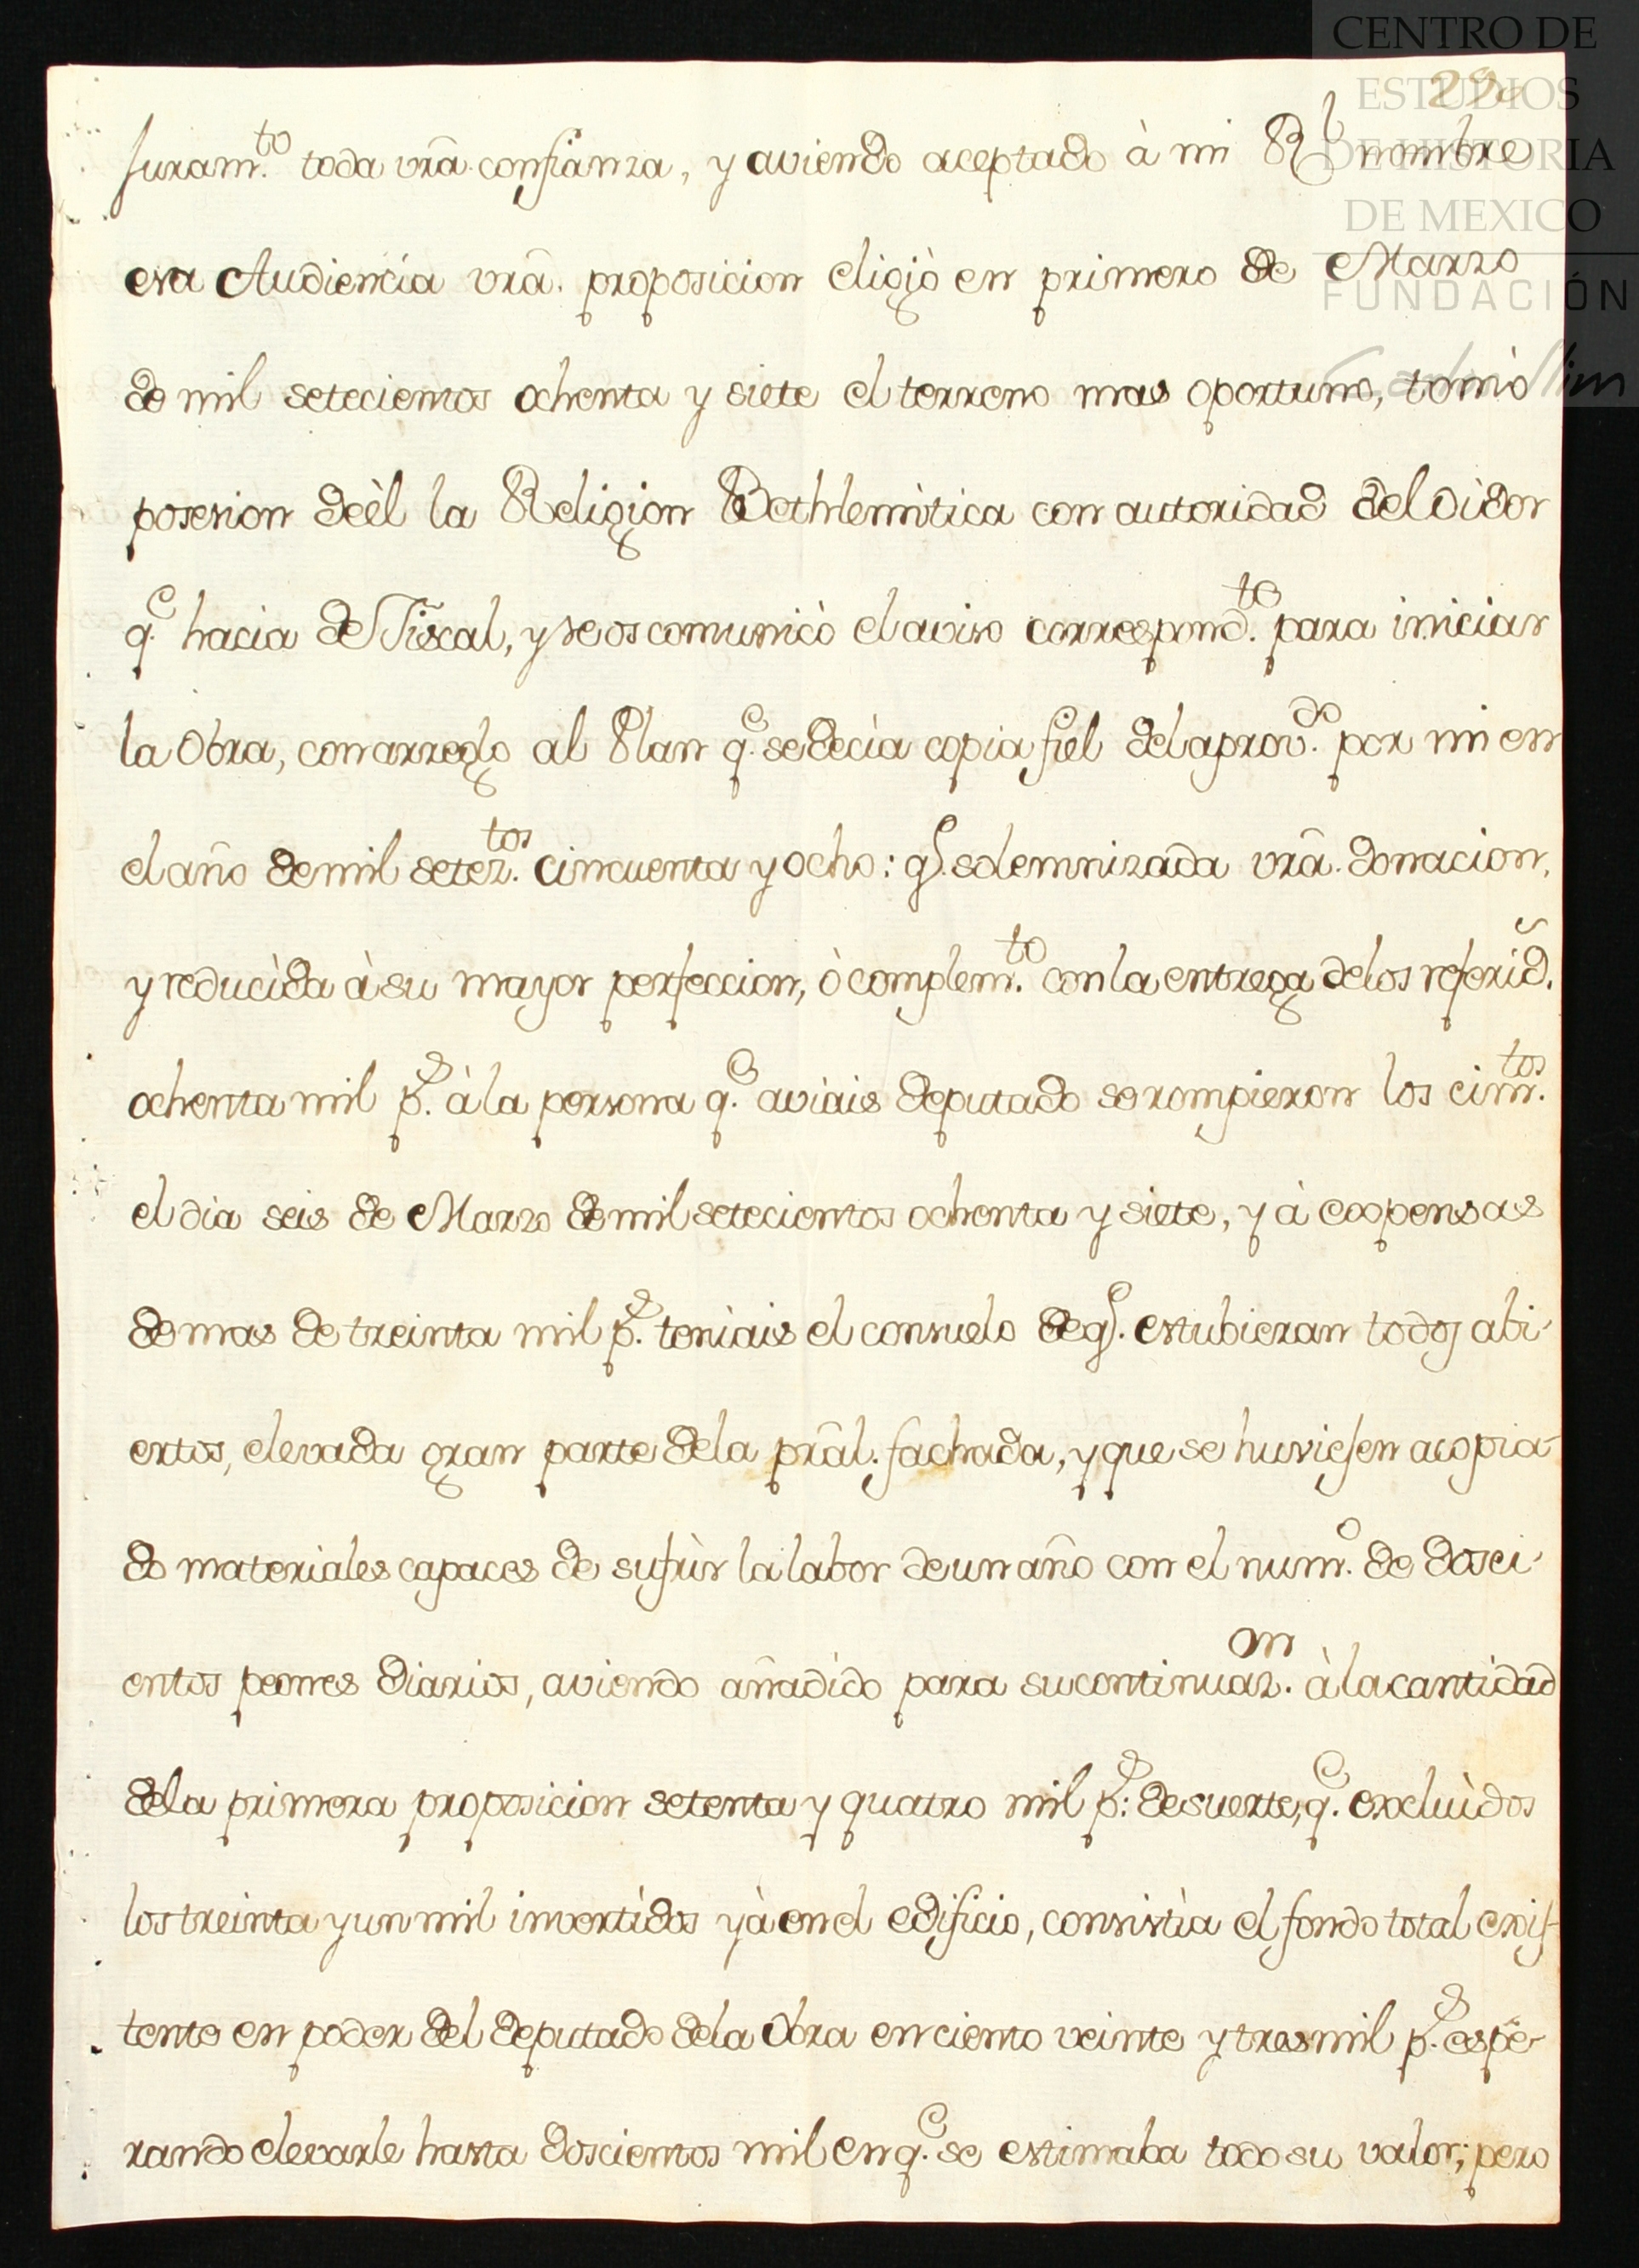 CENTRO DE
ESTUDIOS
DE HISTORIA
DE MEXICO
FUNDACIÓN
Carlos Slim
29
juram.to toda vrã. confianza, y aviendo aceptado à mi Rl nombre
esa Audiencia vrã. proposicion eligiò en primero de Marzo
de mil setecientos ochenta y siete el terreno mas oportuno, tomò
posesion deèl la Religion Bethlemìtica con autoridad del Oìdor
q.e hacia de Fiscal, y se os comunicò el aviso correspond.te para iniciar
la Obra, con arreglo al Plan q.e se decìa copia fiel del aprov.do por mi en
el año de mil setez.tos cincuenta y ocho: q.e solemnizada vrã. donacion,
y reducìda à su mayor perfeccion, ò complem.to con la entrega de los referid.s
ochenta mil p.s à la persona q.e aviais deputado se rompieron los cim.tos
el dia seis de Marzo de mil setecientos ochenta y siete, y à expensas
de mas de treinta mil p.s teniais el consuelo de q.e estubieran todos abi-
ertos, elevada gran parte de la prãl. fachada, y que se huviesen acopia-
do materiales capaces de sufrìr la labor de un año con el num.o de dosci-
entos peones diarios, aviendo añadido para su continuaz.on à la cantidad
de la primera proposicion setenta y quatro mil p.s: de suerte, q.e excluìdos
los treinta y un mil invertìdos yà en el edificio, consistìa el fondo total exis-
tente en poder del deputado de la Obra en ciento veinte y tres mil p.s espe-
rando elevarle hasta doscientos mil en q.e se estimaba todo su valor; pero